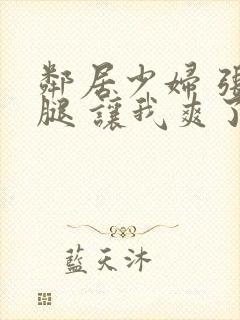 鄰居少婦張
腿讓我爽了
藍天沐